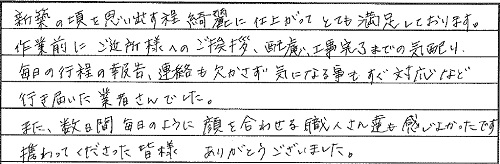 新築の頃を思い出す程 綺麗に仕上がって とても満足しております。
作業前に ご近所様へのご挨拶、配慮、工事完了までの気配り、
毎日の行程の報告、連絡も欠かさず 気になる事も すぐ対応など
行き届いた業者さんでした。
また、数日間 毎日のように 顔を合わせる職人さん達も 感じよかったです
携わってくださった皆様　ありがとうございました。